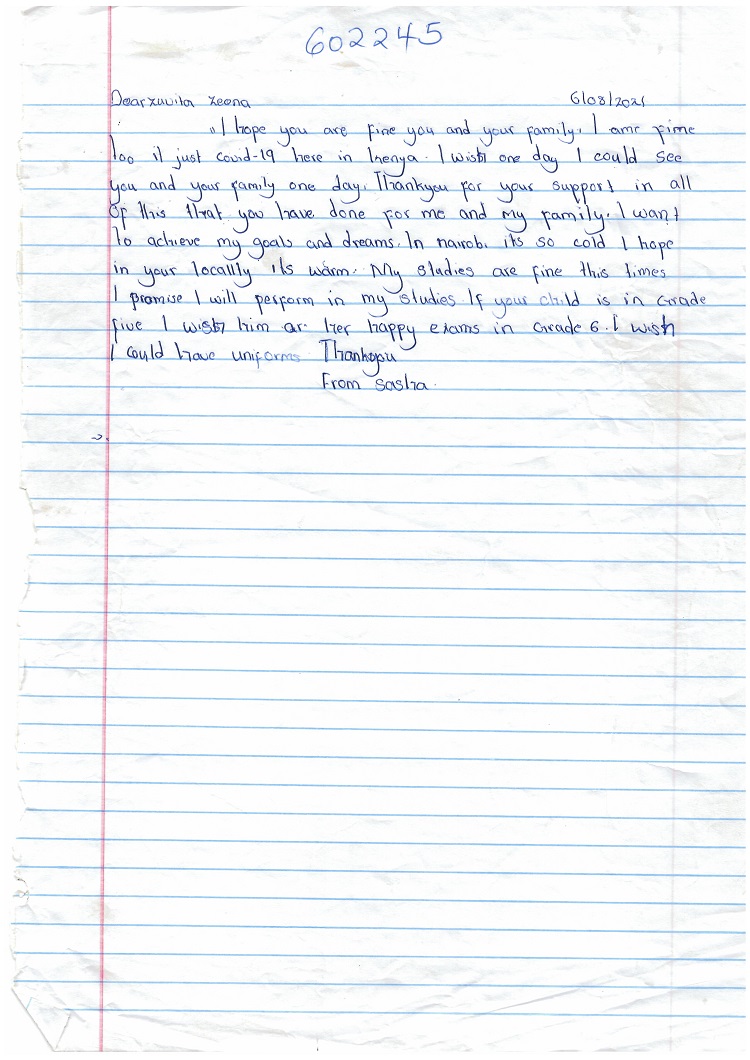 602245
Dear zuvita zeena 6/08/2021
"I hope you are fine you and your family. I am fime
too it just covid-19 here in kenya. I wish one day I could see
you and your family one day. Thankyou for your support in all
Of this that you have done for me and my family. I want
to achieve my goals and dreams. In nairobi its so cold I hope
in your locallly its warm. My studies are fine this times
I promise I will perform in my studies If your child is in Grade
five I wish him or her happy exams in Grade 6. I wish
I could have uniforms Thankyou
From sasha.